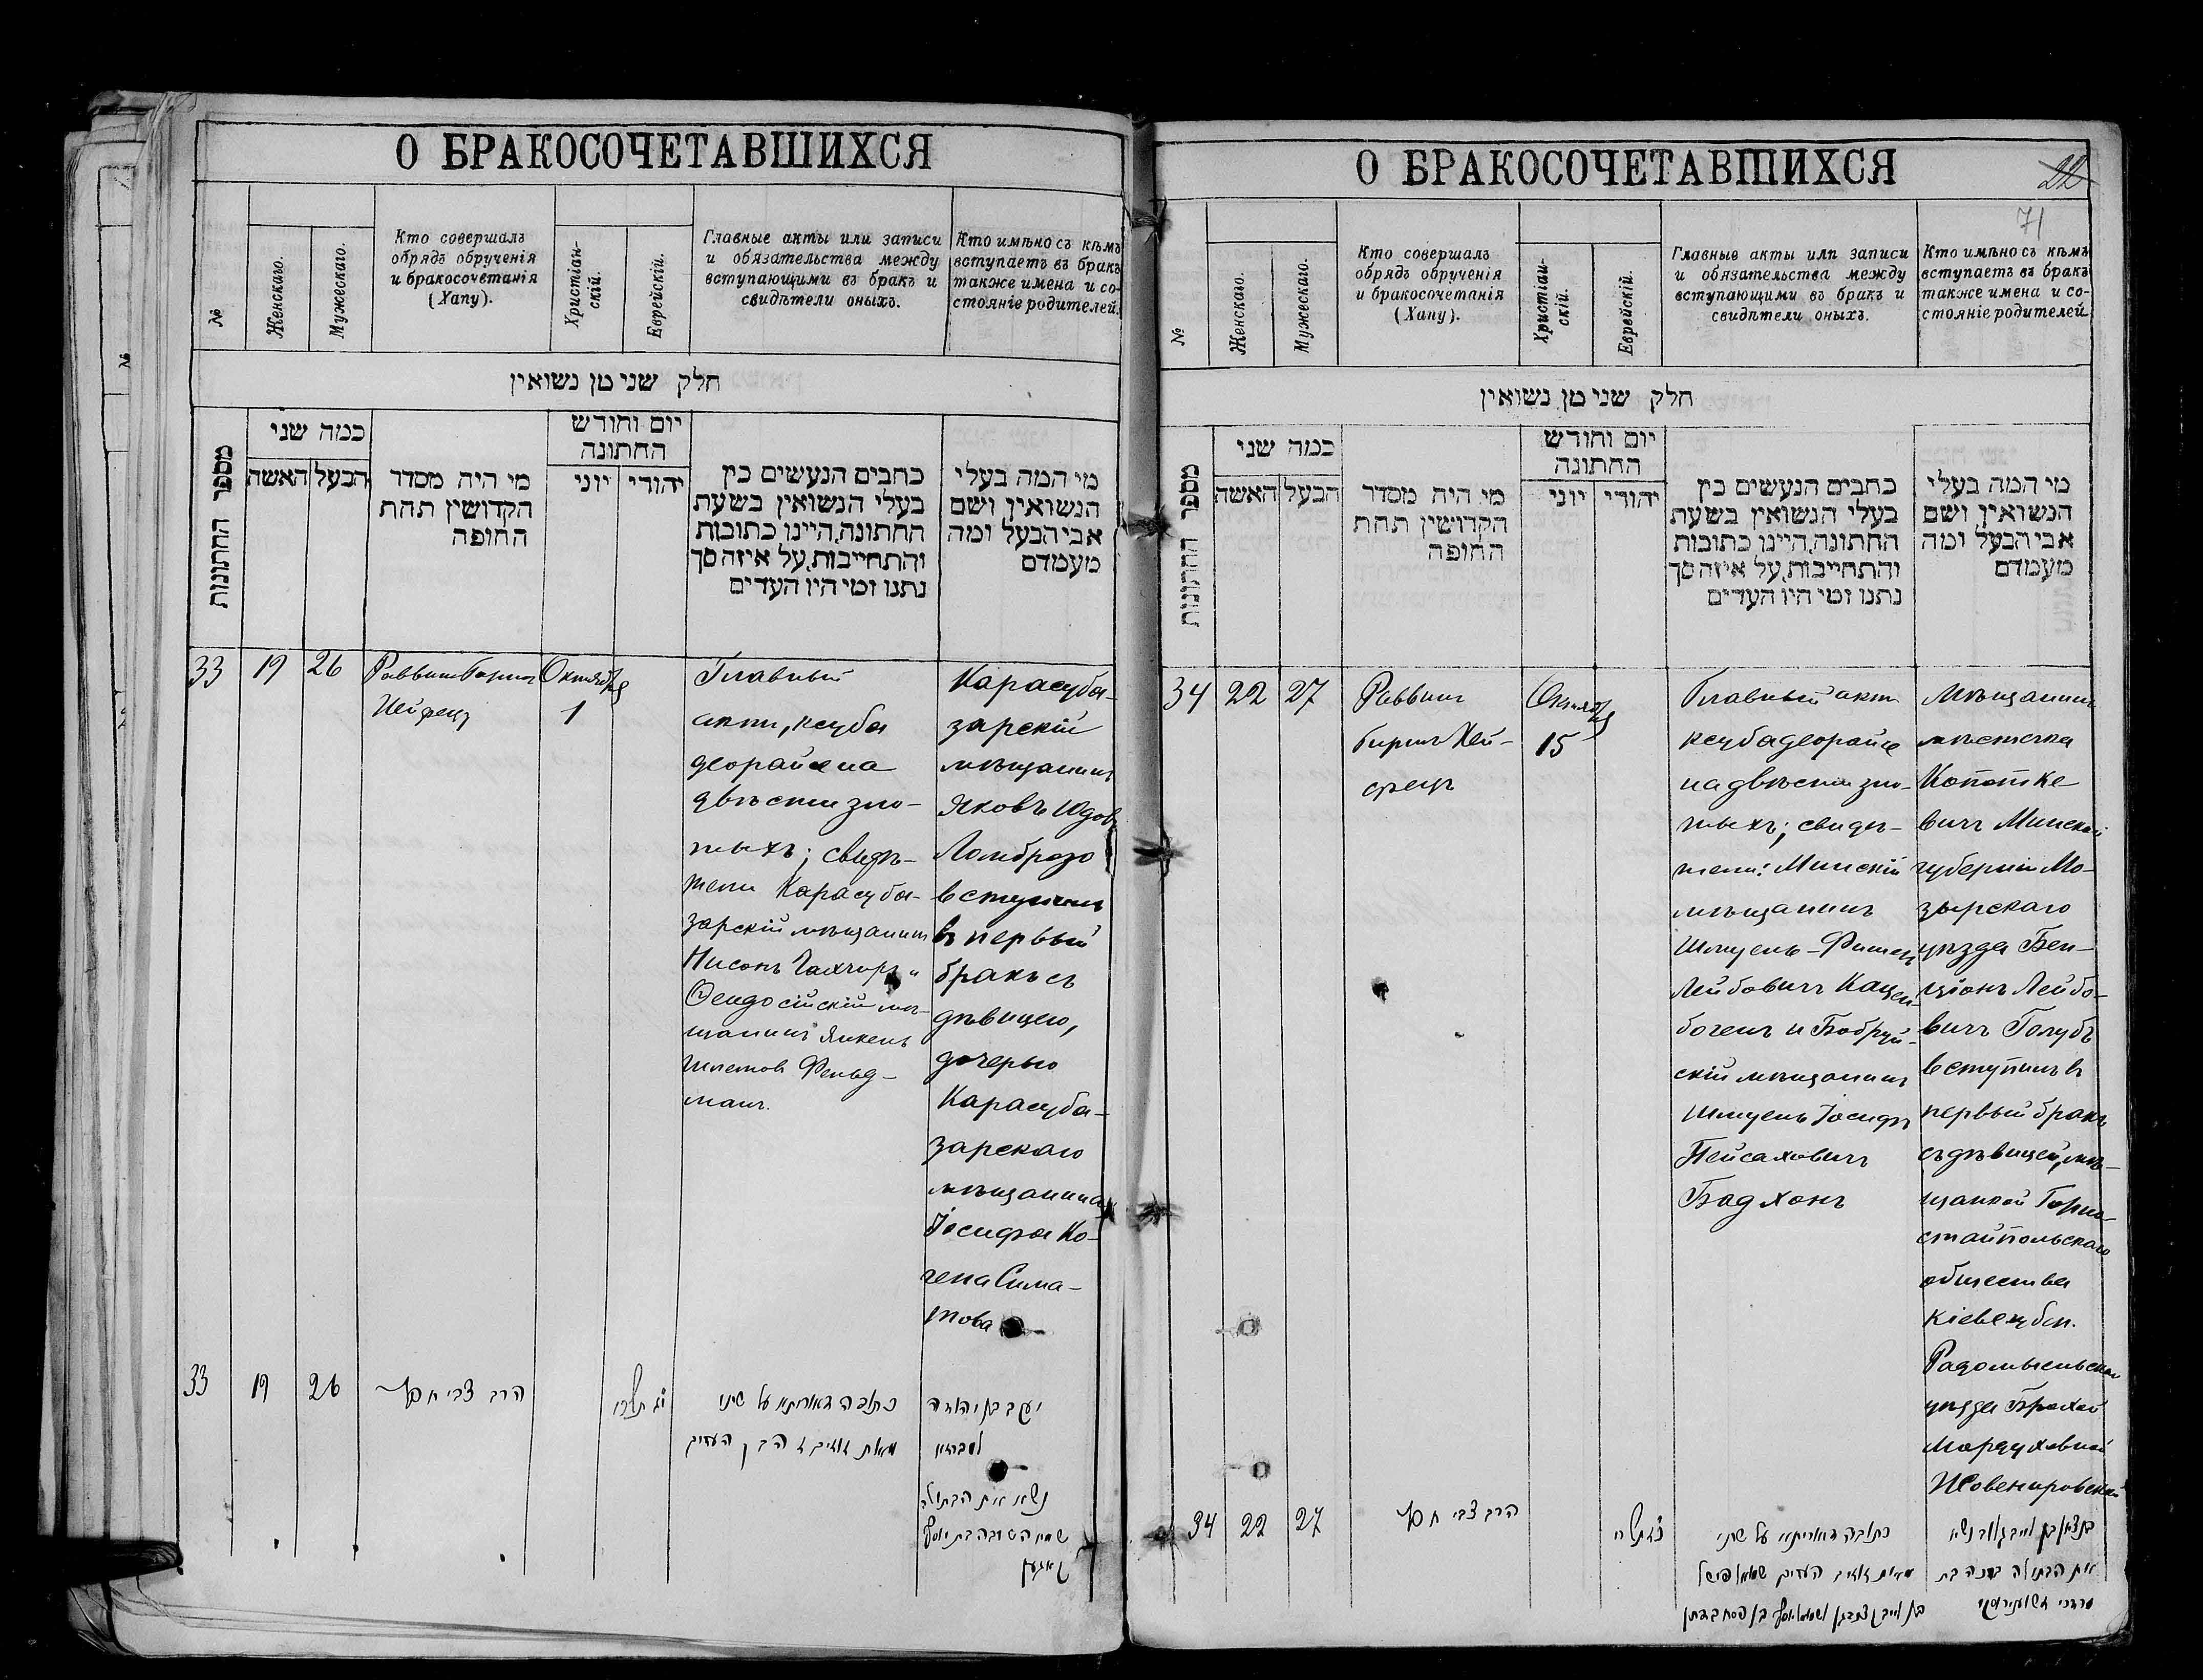 О БРАКОСОЧЕТАВШИХСЯ
№
Женскаго.
Мужескаго.
Кто совершалъ
обрядъ обрученія
и бракосочетанія
(Хапу).
Христіан-
скій.
Еврейскій.
Главные акты или записи
и обязательства между
вступающими въ бракъ и
свидѣтели оныхъ.
Кто имѣно съ кѣмъ
вступаетъ въ бракъ
также имена и со-
стояніе родителей.
חלק שני מן נשואין
מספר החתונות
כמה שני
האשה
הבעל
מי היה מסדר
הקדושין תחת
החופה
יום וחודש
החתונה
יוני
יהודי
כתבים הנעשים בין
בעלי הנשואין בשעת
החתונה,היינו כתובות
והתחייבות,על איזה סך
נתנו ומי היו העדים
מי המה בעלי
הנשואין ושם
אבי הבעל ומה
מעמדם
33
19
26
Раввинъ
Хейфецъ
Октября
1
Главный
актъ, ксуба
деорайса на
двѣсти зло-
тыхъ; свидѣ-
тели Карасуба-
зарскій мѣщанинъ
Нисонъ и
Феодосійскій мѣ-
щанинъ Янкель
Фельд-
манъ.
Карасуба-
зарскій
мѣщанинъ
Яковъ Юдовъ
Ломброзо
вступилъ
въ первый
бракъ съ
дѣвицею,
дочерью
Карасуба-
зарскаго
мѣщанина
Іосифа Ко-
гена Сима-
това
33
19
26
הרב צבי חפץ
כתובה דאוריתא על שתי
מאות זהובים
יעקב בן יהודה
לומברוזו
נשא את הבתולה
בת יוסף
О БРАКОСОЧЕТАВШИХСЯ
22
71
№
Женскаго.
Мужескаго.
Кто совершалъ
обрядъ обрученія
и бракосочетанія
(Хапу).
Христіан-
скій.
Еврейскій.
Главные акты или записи
и обязательства между
вступающими въ бракъ и
свидѣтели оныхъ.
Кто имѣно съ кѣмъ
вступаетъ въ бракъ
также имена и со-
стояніе родителей.
חלק שני מן נשואין
מספר החתונות
כמה שני
האשה
הבעל
מי היה מסדר
הקדושין תחת
החופה
יום וחודש
החתונה
יוני
יהודי
כתבים הנעשים בין
בעלי הנשואין בשעת
החתונה,היינו כתובות
והתחייבות,על איזה סך
נתנו ומי היו העדים
מי המה בעלי
הנשואין ושם
אבי הבעל ומה
מעמדם
34
22
27
Раввинъ
Хей-
фецъ
Октября
15
Главный актъ
ксуба деорайсе
на двѣсти зло-
тыхъ; свидѣ-
тели: Минскій
мѣщанинъ
Шмуель-Фишель
Лейбовичъ Кацен-
богенъ и Бобруй-
скій мѣщанинъ
Шмуель Іосифъ
Пейсаховичъ
Бадханъ
Мѣщанинъ
мѣстечка
Копатке-
вичъ Минской
губерніи Мо-
зырскаго
уѣзда Бен-
ціонъ Лейбо-
вичъ Голубъ
вступилъ въ
первый бракъ
съ дѣвицей, мѣ-
щанкой Горно-
стайпольскаго
общества
Кіевс. губерн.
Радомысльскаго
уѣзда Брахой
Мордуховной
34
22
27
הרב צבי חפץ
כתובה דאוריתא על שתי
מאות זהובים העדים שמואל פישל
בן לייב קצנבוגן ושמואל יוסף בן פסח בדחן
בן ציון בן לייב גאלוב נשא
את הבתולה ברכה בת
מרדכי